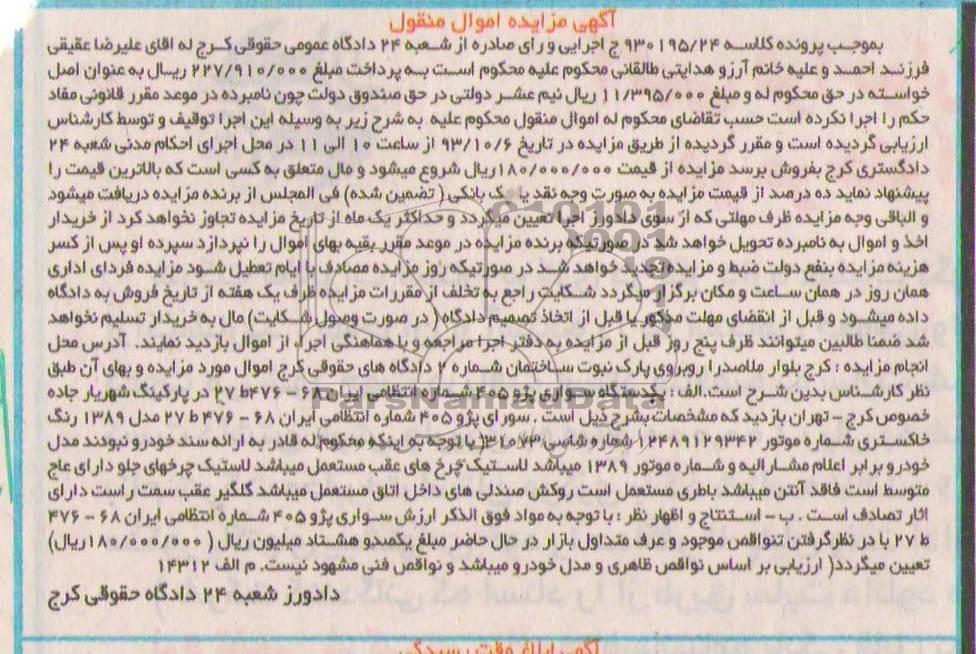 آگهی مزایده اموال منقول
بموجب پرونده کلاسه ۹۳۰۱۹۵/۲۴ ج اجرایی و رای صادره از شعبه ۲۴ دادگاه عمومی حقوقی کرج له اقای علیرضا عقیقی
فرزند احمد و علیه خانم آرزو هدایتی طالقانی محکوم علیه محکوم است به پرداخت مبلغ ۲۲۷/۹۱۰/۰۰۰ ریال به عنوان اصل
خواسته در حق محکوم له و مبلغ ۱۱/۳۹۵/۰۰۰ ریال نیم عشر دولتی در حق صندوق دولت چون نامبرده در موعد مقرر قانونی مفاد
حکم را اجرا نکرده است حسب تقاضای محکوم له اموال منقول محکوم علیه به شرح زیر به وسیله این اجرا توقیف و توسط کارشناس
ارزیابی گردیده است و مقرر گردیده از طریق مزایده در تاریخ ۹۳/۱۰/۶ از ساعت ۱۰ الی ۱۱ در محل اجرای احکام مدنی شعبه ۲۴
دادگستری کرج بفروش برسد مزایده از قیمت ۱۸۰/۰۰۰/۰۰۰ریال شروع میشود و مال متعلق به کسی است که بالاترین قیمت را
پیشنهاد نماید ده درصد از قیمت مزایده به صورت وجه نقد یا چک بانکی ( تضمین شده) فی المجلس از برنده مزایده دریافت میشود
و الباقی وجه مزایده ظرف مهلتی که از سوی دادورز اجرا تعیین میگردد و حداکثر یک ماه از تاریخ مزایده تجاوز نخواهد کرد از خریدار
اخذ و اموال به نامبرده تحویل خواهد شد در صورتیکه برنده مزایده در موعد مقرر بقیه بهای اموال را نپردازد سپرده او پس از کسر
هزینه مزایده بنفع دولت ضبط و مزایده تجدید خواهد شد در صورتیکه روز مزایده مصادف با ایام تعطیل شود مزایده فردای اداری
همان روز در همان ساعت و مکان برگزار میگردد شکایت راجع به تخلف از مقررات مزایده ظرف یک هفته از تاریخ فروش به دادگاه
داده میشود و قبل از انقضای مهلت مذکور یا قبل از اتخاذ تصمیم دادگاه ( در صورت وصول شکایت) مال به خریدار تسلیم نخواهد
شد ضمنا طالبین میتوانند ظرف پنج روز قبل از مزایده به دفتر اجرا مراجعه و با هماهنگی اجرا، از اموال بازدید نمایند. آدرس محل
انجام مزایده : کرج بلوار ملاصدرا روبروی پارک نبوت ساختمان شماره ۲ دادگاه های حقوقی کرج اموال مورد مزایده و بهای آن طبق
نظر کارشناس بدین شرح است.الف : یکدستگاه سواری پژو ۴۰۵ شماره انتظامی ایران ۶۸ - ۴۷۶ط ۲۷ در پارکینگ شهریار جاده
خصوص کرج - تهران بازدید که مشخصات بشرح ذیل است . سورای پژو ۴۰۵ شماره انتظامی ایران ۶۸ - ۴۷۶ ط ۲۷ مدل ۱۳۸۹ رنگ
خاکستری شماره موتور ۱۲۴۸۹۱۲۹۳۴۲ شماره شاسی با توجه به اینکه محکوم له قادر به ارائه سند خودرو نبودند مدل
خودرو برابر اعلام مشارالیه و شماره موتور ۱۳۸۹ میباشد لاستیک چرخ های عقب مستعمل میباشد لاستیک چرخهای جلو دارای عاج
متوسط است فاقد آنتن میباشد باطری مستعمل است روکش صندلی های داخل اتاق مستعمل میباشد گلگیر عقب سمت راست دارای
اثار تصادف است . ب - استنتاج و اظهار نظر : با توجه به مواد فوق الذکر ارزش سواری پژو ۴۰۵ شماره انتظامی ایران ۶۸ - ۴۷۶
ط ۲۷ با در نظر گرفتن تنواقص موجود و عرف متداول بازار در حال حاضر مبلغ یکصدو هشتاد میلیون ریال ( ۱۸۰/۰۰۰/۰۰۰ریال)
تعیین میگردد( ارزیابی بر اساس نواقص ظاهری و مدل خودرو میباشد و نواقص فنی مشهود نیست. م الف ۱۴۳۱۲
دادورز شعبه ۲۴ دادگاه حقوقی کرج
آگهی ابلاغ وقت رسیدگی
ParsNamadData